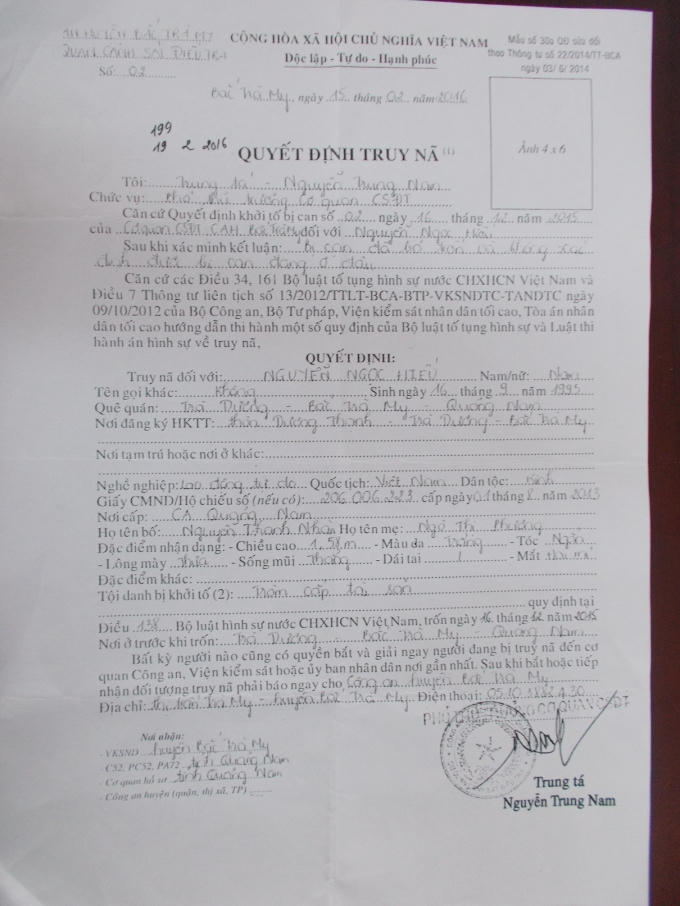 CA HUYỆN BẮC TRÀ MY
CỘNG HÒA XÃ HỘI CHỦ NGHĨA VIỆT NAM
Mẫu số 30a QĐ sửa đổi
CƠ QUAN CẢNH SÁT ĐIỀU TRA
Độc lập - Tự do - Hạnh phúc
theo Thông tư số 22/2014/TT-BCA
Số: 02
ngày 03/6/2014
Bắc Trà My, ngày 15 tháng 02 năm 2016
199
19 2 2016
QUYẾT ĐỊNH TRUY NÃ (1)
Ảnh 4 x 6
Tôi: Trung tá - Nguyễn Trung Nam
Chức vụ: Phó thủ trưởng Cơ quan CSĐT
Căn cứ Quyết định khởi tố bị can số 02 ngày 16 tháng 12 năm 2015
của Cơ quan CSĐT CAH Bắc Trà My đối với Nguyễn Ngọc Hiếu
Sau khi xác minh kết luận: Bị can đã bỏ trốn và không xác
định được bị can đang ở đâu
Căn cứ các Điều 34, 161 Bộ luật tố tụng hình sự nước CHXHCN Việt Nam và
Điều 7 Thông tư liên tịch số 13/2012/TTLT-BCA-BTP-VKSNDTC-TANDTC ngày
09/10/2012 của Bộ Công an, Bộ Tư pháp, Viện kiểm sát nhân dân tối cao, Tòa án nhân
dân tối cao hướng dẫn thi hành một số quy định của Bộ luật tố tụng hình sự và Luật thi
hành án hình sự về truy nã,
QUYẾT ĐỊNH:
Truy nã đối với: NGUYỄN NGỌC HIẾU Nam/nữ: Nam
Tên gọi khác: Không Sinh ngày 16 tháng 9 năm 1995
Quê quán: Trà Dương - Bắc Trà My - Quảng Nam
Nơi đăng ký HKTT: thôn Dương Thanh - Trà Dương - Bắc Trà My
Nơi tạm trú hoặc nơi ở khác:
Nghề nghiệp: Lao động tự do Quốc tịch: Việt Nam Dân tộc: Kinh
Giấy CMND/Hộ chiếu số (nếu có): 206 006 223 cấp ngày 01 tháng 8 năm 2013
Nơi cấp: CA Quảng Nam
Họ tên bố: Nguyễn Thanh Nhân Họ tên mẹ: Ngô Thị Phương
Đặc điểm nhận dạng: - Chiều cao 1,58m - Màu da Trắng - Tóc Ngắn
- Lông mày Thưa - Sống mũi Thẳng - Dái tai / - Mắt
Đặc điểm khác:
Tội danh bị khởi tố (2): Trộm cắp tài sản
quy định tại
Điều 138 Bộ luật hình sự nước CHXHCN Việt Nam, trốn ngày 16 tháng 12 năm 2015
Nơi ở trước khi trốn: Trà Dương - Bắc Trà My - Quảng Nam
Bất kỳ người nào cũng có quyền bắt và giải ngay người đang bị truy nã đến cơ
quan Công an, Viện kiểm sát hoặc ủy ban nhân dân nơi gần nhất. Sau khi bắt hoặc tiếp
nhận đối tượng truy nã phải báo ngay cho Công an huyện Bắc Trà My
Địa chỉ: Thị trấn Trà My - huyện Bắc Trà My Điện thoại:
PHÓ THỦ TRƯỞNG CƠ QUAN CSĐT
Nơi nhận:
- VKSND huyện Bắc Trà My
- C52, PC52, PA72 tỉnh Quảng Nam
- Cơ quan hồ sơ tỉnh Quảng Nam
- Công an huyện (quận, thị xã, TP)
Trung tá
Nguyễn Trung Nam